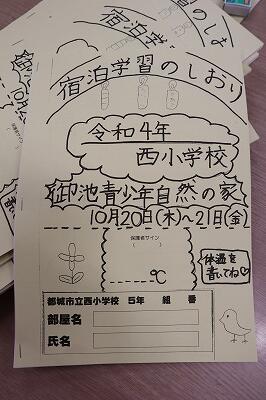 宿泊学習のしおり
令和4年
西小学校
御池青少年自然の家
10月20日(木)~21日(金)
保護者サイン
( )
℃
体温を
書いてね♡
都城市立西小学校 5年 組 番
部屋名
氏名